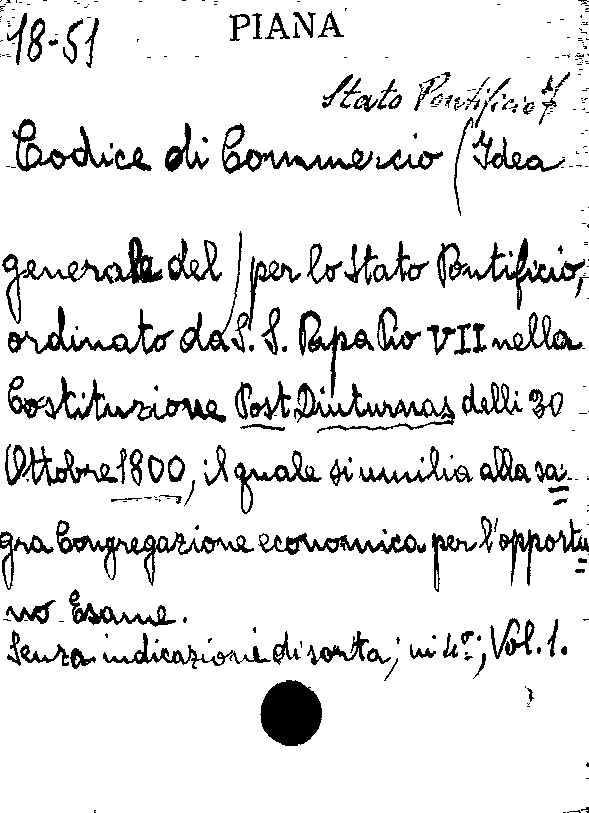 PIANA
18-51
Stato Pontificio
Codice di Commercio (Idea
generale del) per lo Stato Pontificio,
ordinato da S. S. Papa Pio VII nella
Costituzione Post Diuturnas delli 30
Ottobre 1800, il quale si umilia alla sa=
gra Congregazione economica per l'opportu=
no Esame.
Senza indicazione di sorta; in 4º; Vol. 1.